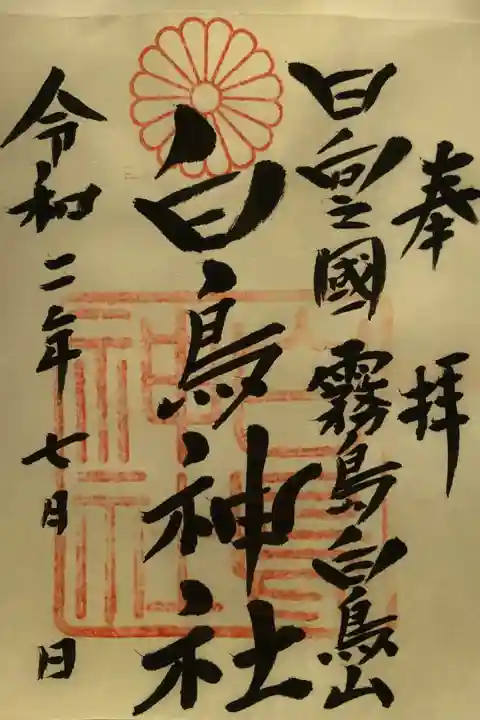 奉拝
日向之國 霧島白鳥山
白鳥神社
令和二年七月 日
白鳥神社